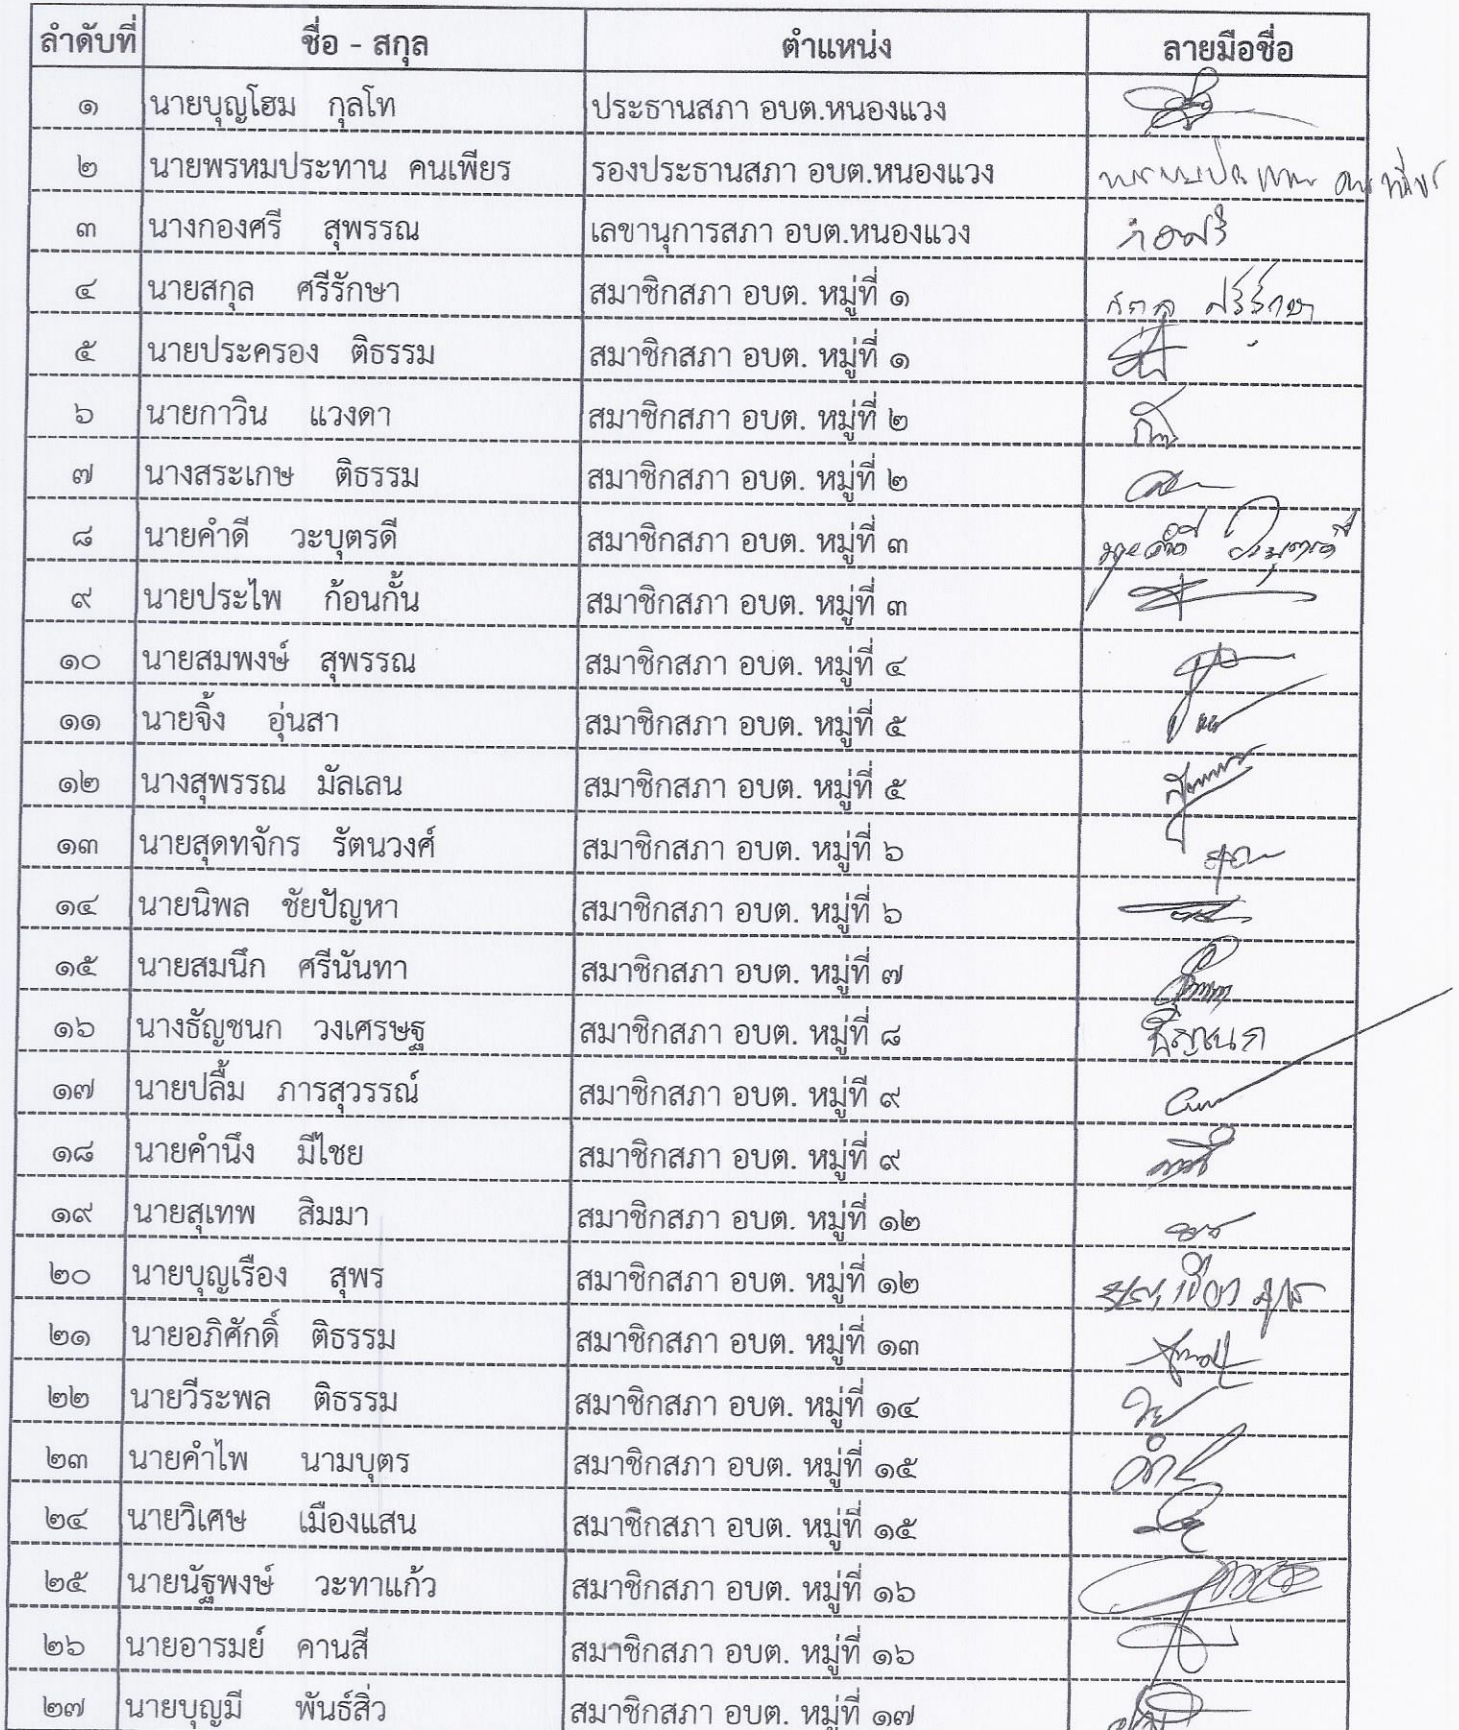 ลำดับที่ ชื่อ - สกุล ตำแหน่ง ลายมือชื่อ
๑ นายบุญโฮม กุลโท ประธานสภา อบต.หนองแวง
๒ นายพรหมประทาน คนเพียร รองประธานสภา อบต.หนองแวง พรหมประทาน คนเพียร
๓ นางกองศรี สุพรรณ เลขานุการสภา อบต.หนองแวง กองศรี
๔ นายสกุล ศรีรักษา สมาชิกสภา อบต. หมู่ที่ ๑ สกุล ศรีรักษา
๕ นายประครอง ติธรรม สมาชิกสภา อบต. หมู่ที่ ๑
๖ นายกาวิน แวงดา สมาชิกสภา อบต. หมู่ที่ ๒
๗ นางสระเกษ ติธรรม สมาชิกสภา อบต. หมู่ที่ ๒
๘ นายคำดี วะบุตรดี สมาชิกสภา อบต. หมู่ที่ ๓
๙ นายประไพ ก้อนกั้น สมาชิกสภา อบต. หมู่ที่ ๓
๑๐ นายสมพงษ์ สุพรรณ สมาชิกสภา อบต. หมู่ที่ ๔
๑๑ นายจิ้ง อุ่นสา สมาชิกสภา อบต. หมู่ที่ ๕
๑๒ นางสุพรรณ มัลเลน สมาชิกสภา อบต. หมู่ที่ ๕
๑๓ นายสุดทจักร รัตนวงศ์ สมาชิกสภา อบต. หมู่ที่ ๖
๑๔ นายนิพล ชัยปัญหา สมาชิกสภา อบต. หมู่ที่ ๖
๑๕ นายสมนึก ศรีนันทา สมาชิกสภา อบต. หมู่ที่ ๗
๑๖ นางธัญชนก วงเศรษฐ สมาชิกสภา อบต. หมู่ที่ ๘ ธัญชนก
๑๗ นายปลื้ม ภารสุวรรณ์ สมาชิกสภา อบต. หมู่ที ๙
๑๘ นายคำนึง มีไชย สมาชิกสภา อบต. หมู่ที่ ๙
๑๙ นายสุเทพ สิมมา สมาชิกสภา อบต. หมู่ที่ ๑๒
๒๐ นายบุญเรือง สุพร สมาชิกสภา อบต. หมู่ที่ ๑๒ บุญเรือง สุพร
๒๑ นายอภิศักดิ์ ติธรรม สมาชิกสภา อบต. หมู่ที่ ๑๓
๒๒ นายวีระพล ติธรรม สมาชิกสภา อบต. หมู่ที่ ๑๔
๒๓ นายคำไพ นามบุตร สมาชิกสภา อบต. หมู่ที่ ๑๕
๒๔ นายวิเศษ เมืองแสน สมาชิกสภา อบต. หมู่ที่ ๑๕
๒๕ นายนัฐพงษ์ วะทาแก้ว สมาชิกสภา อบต. หมู่ที่ ๑๖
๒๖ นายอารมย์ คานสี สมาชิกสภา อบต. หมู่ที่ ๑๖
๒๗ นายบุญมี พันธ์สิ่ว สมาชิกสภา อบต. หมู่ที่ ๑๗